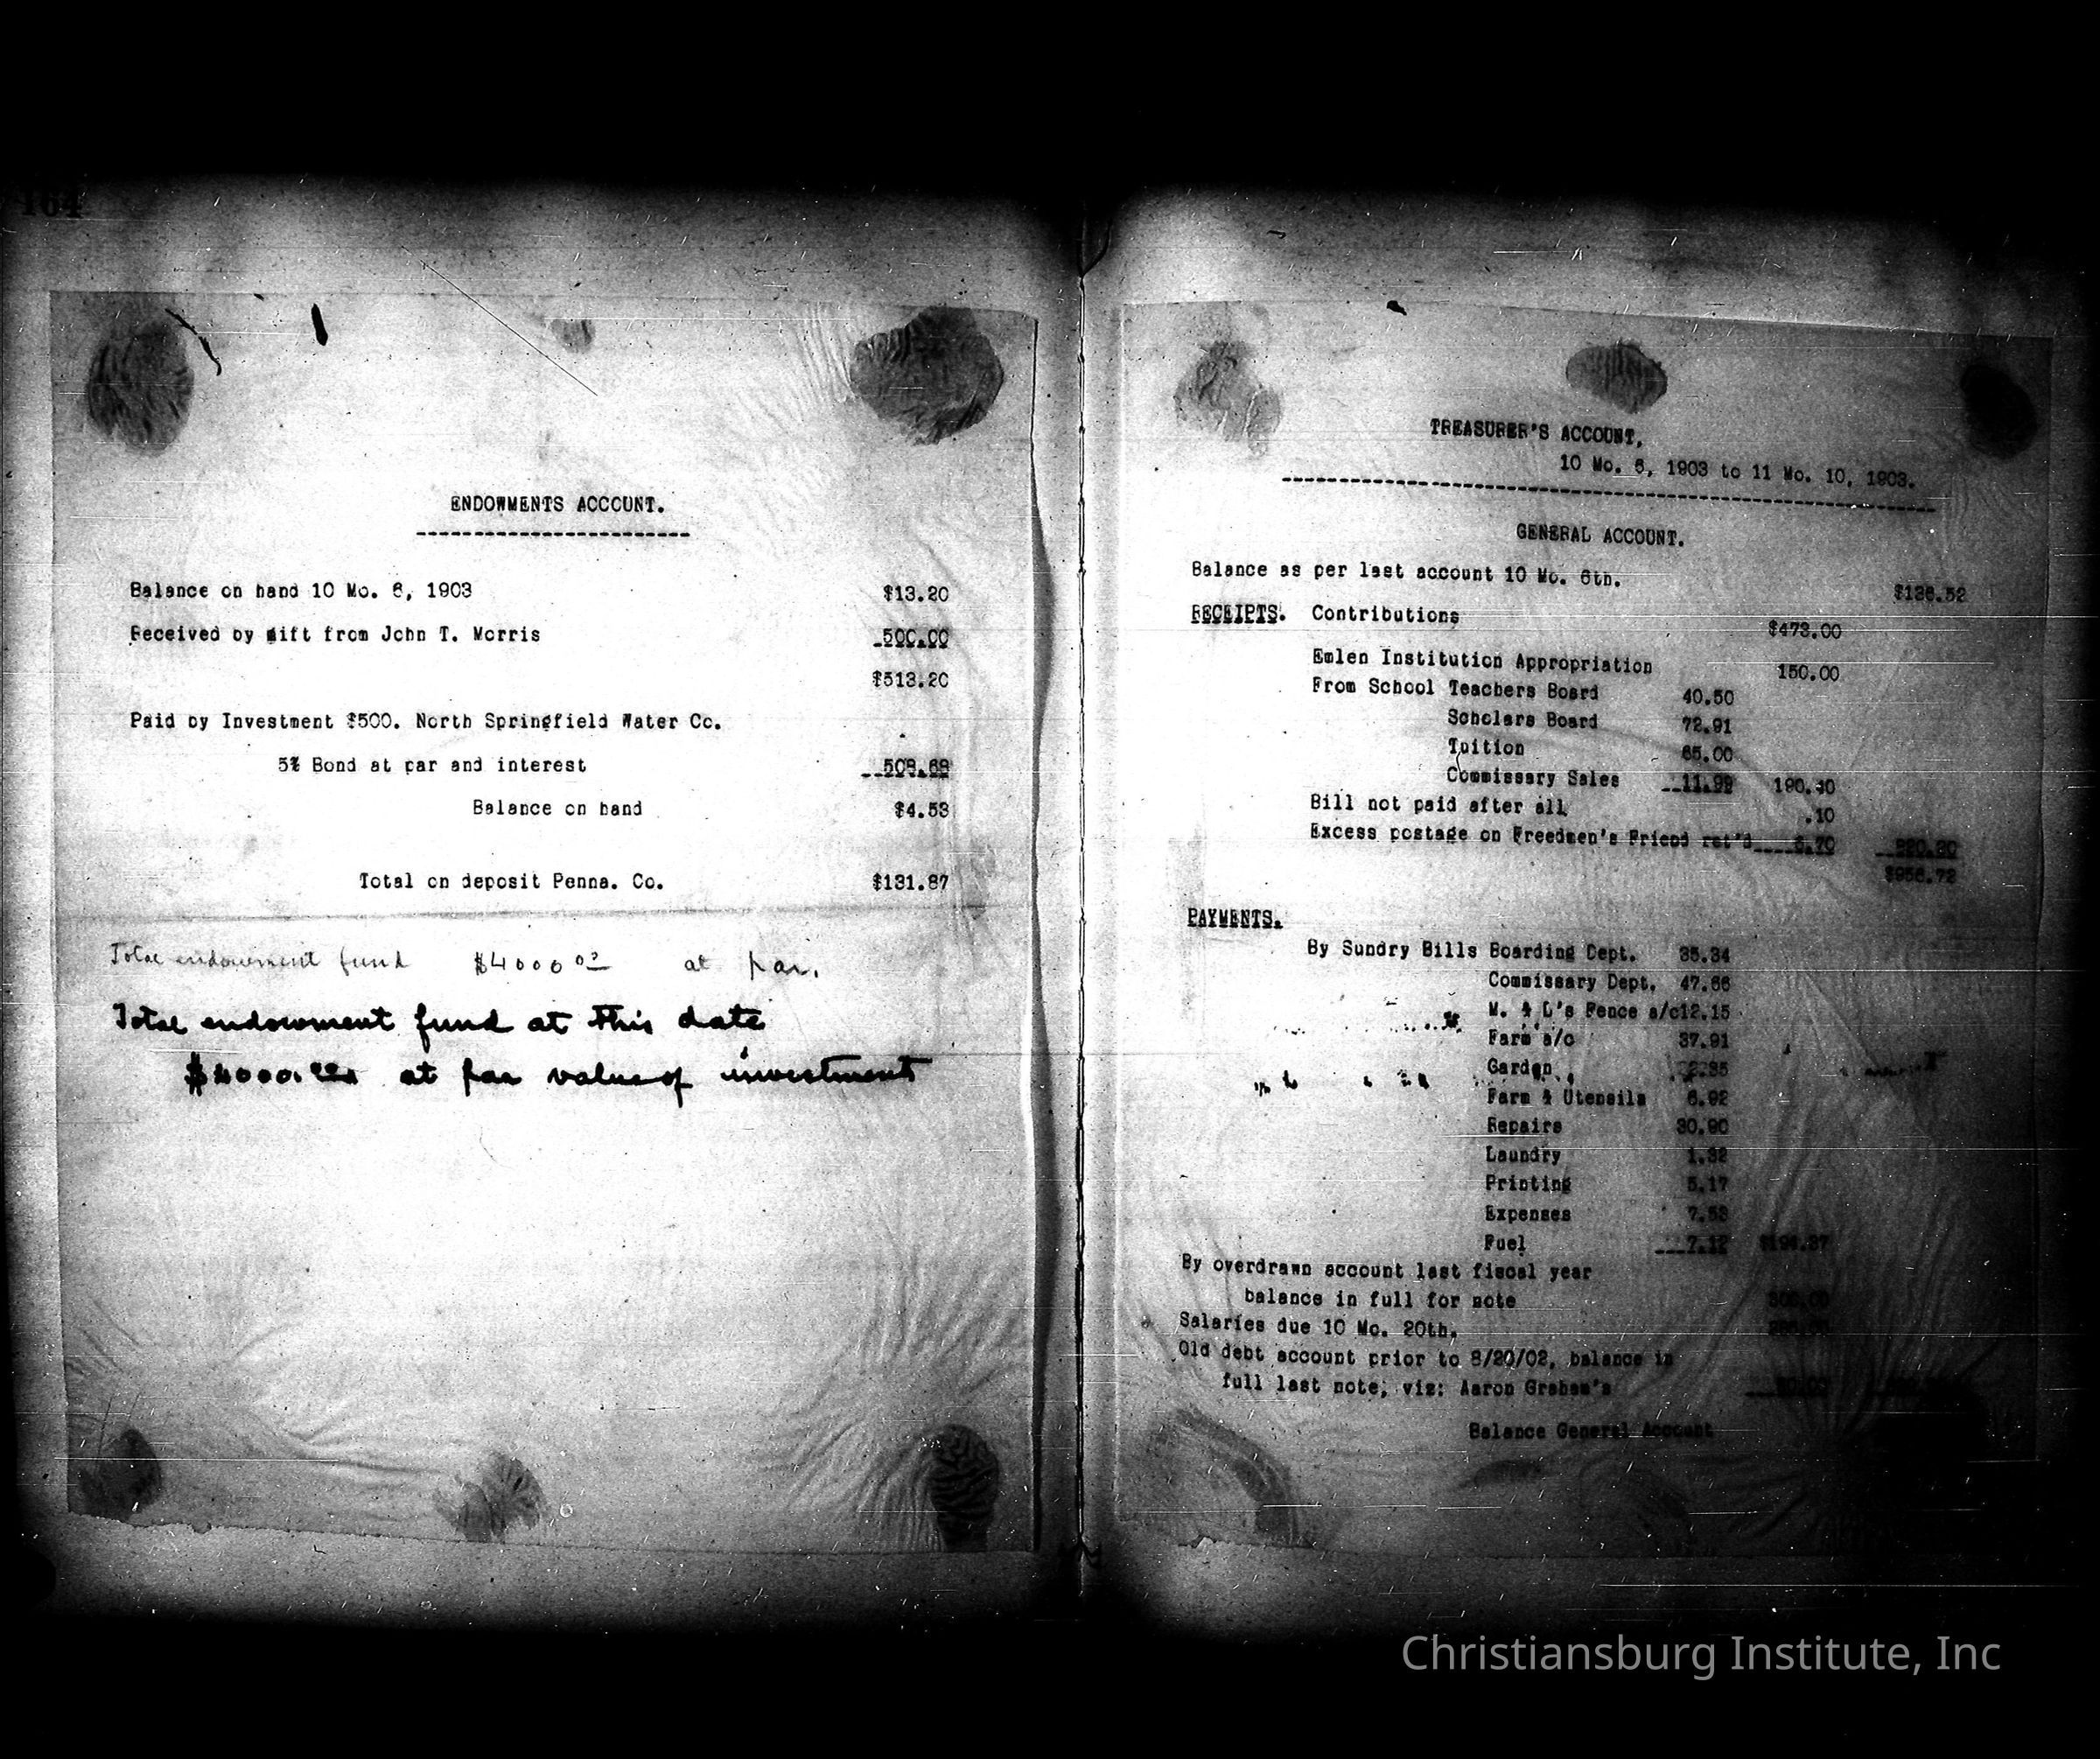 164
ENDOWMENTS ACCOUNT.
Balance on hand 10 Mo. 6, 1903 $13.20
Received by gift from John T. Morris 500.00
$513.20
Paid by Investment $500. North Springfield Water Co.
5% Bond at par and interest 508.68
Balance on hand $4.53
Total on deposit Penna. Co. $131.87
Total endowment fund $4000 00 at par.
Total endowment fund at this date
$4000.00 at par value of investment
TREASURER'S ACCOUNT,
10 Mo. 6, 1903 to 11 Mo. 10, 1903.
GENERAL ACCOUNT.
Balance as per last account 10 Mo. 6th. $136.52
RECEIPTS. Contributions $473.00
Emlen Institution Appropriation 150.00
From School Teachers Board 40.50
Scholars Board 72.91
Tuition 65.00
Commissary Sales 11.99 190.40
Bill not paid after all .10
Excess postage on Freedmen's Friend ret'd 6.70 820.20
$956.72
PAYMENTS.
By Sundry Bills Boarding Dept. 35.34
Commissary Dept. 47.66
M. & L's Fence a/c 12.15
Farm a/c 37.91
Garden 2.35
Farm & Utensils 6.92
Repairs 30.90
Laundry 1.32
Printing 5.17
Expenses 7.53
Fuel 7.12 $194.37
By overdrawn account last fiscal year
balance in full for note
Salaries due 10 Mo. 20th.
Old debt account prior to 8/20/02, balance in
full last note, viz: Aaron Graham's
Balance General Account
Christiansburg Institute, Inc